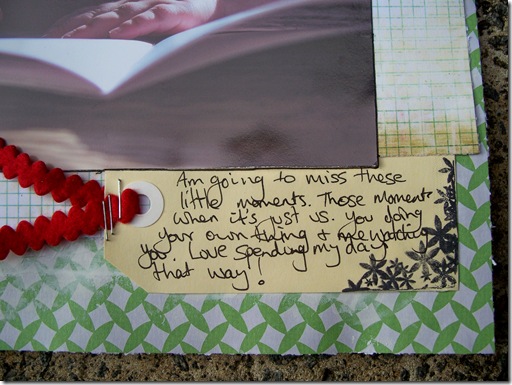 Am going to miss these
little moments. Those Moments
when it's just us. You doing
your own thing + me watching
you. Love spending my day
that way!